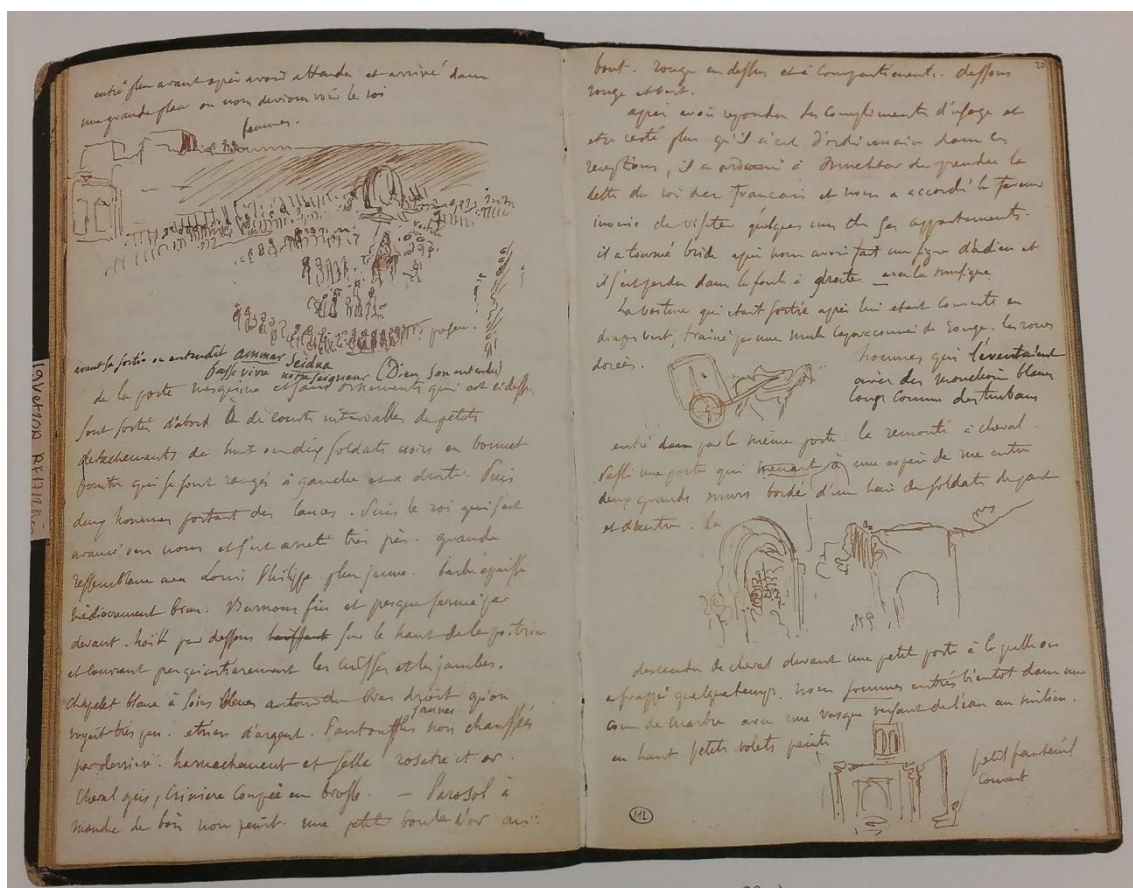 entré plus avant après avoir attendu et arrivé dans
une grande place ou nous devions voir le roi
femmes.
pages.
avant sa sortie on entendit ammar Seidna
vive notre seigneur (Dieu sous entendu)
de la porte mesquine et sans ornements qui est ci dessus
sont sortis d'abord à de courts intervalles de petits
detachements de huit ou dix soldats noirs en bonnet
pointu qui se sont rangés à gauche et a droite. Puis
deux hommes portant des lances. Puis le roi qui s'est
avancé vers nous et s'est arreté très près. grande
ressemblance avec Louis Philippe plus jeune. barbe épaisse
médiocrement brun. Burnous fin et presque fermé par
devant. haïk par dessous sur le haut de la poitrine
et couvrant presqu'entierement les cuisses et les jambes.
chapelet blanc à soies bleues autour du bras droit qu'on
voyait très peu. étriers d'argent. Pantouffles jaunes non chaussées
par derrière. harnachement et selle rosatre et or.
Cheval gris, criniere coupée en brosse. – Parasol à
manche de bois non peint. une petite boule d'or au
20
bout. rouge en dessus et à compartiment. dessous
rouge et vert.
après avoir répondu les compliments d'usage et
etre resté plus qu'il n'est d'ordinaire dans les
receptions, il a ordonné à Muchtar de prendre la
lettre du roi des francais et nous a accordé la faveur
inouie de visiter quelques uns de ses appartements.
il a tourné bride après nous avoir fait un signe d'adieu et
il s'est perdu dans la foule à droite avec la musique
La voiture qui etait partie après lui etait couverte en
drap vert, trainée par une mule caparaconnée de rouge. les roues
dorées.
hommes qui l'éventaient
avec des mouchoirs blancs
longs comme des turbans
entré dans par la même porte. la remonté à cheval.
Passé une porte qui menait à une espèce de rue entre
deux grands murs bordé d'une haie de soldats de part
et d'autre. La
descendu de cheval devant une petite porte à laquelle on
a frappé quelque temps. nous sommes entrés bientot dans une
cour de marbre avec une vasque versant de l'eau au milieu.
en haut petits volets peints
petit fauteuil
couvert
ML